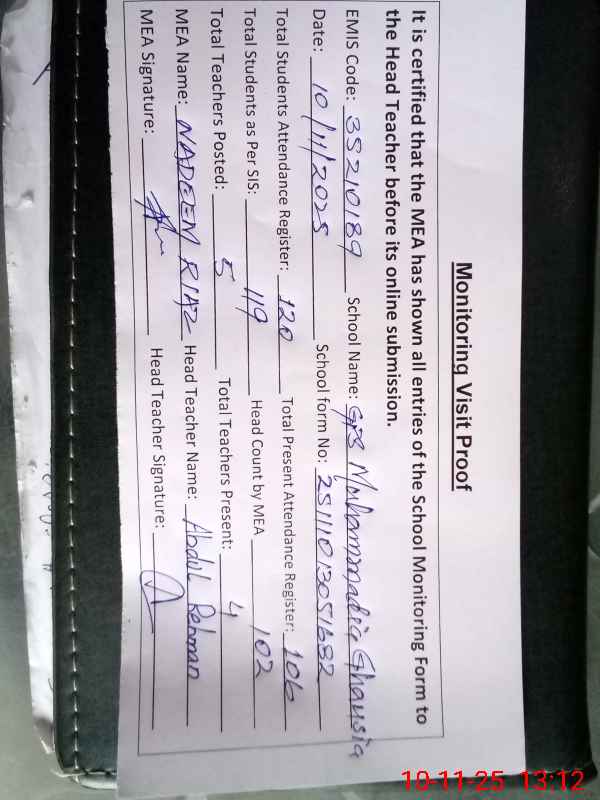 Monitoring Visit Proof
It is certified that the MEA has shown all entries of the School Monitoring Form to
the Head Teacher before its online submission.
EMIS Code: 35210189 School Name: GPS Muhammadia Ghausia
Date: 10/11/2025 School form No: 25111013051682
Total Students Attendance Register: 120 Total Present Attendance Register: 106
Total Students as Per SIS: 119 Head Count by MEA 102
Total Teachers Posted: 5 Total Teachers Present: 4
MEA Name: NADEEM RIAZ Head Teacher Name: Abdul Rehman
MEA Signature: Head Teacher Signature:
10-11-25 13:12